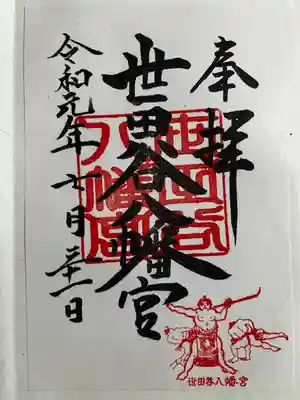 奉拝
世田谷八幡宮
世田谷
八幡宮
令和元年七月三十一日
世田谷八幡宮